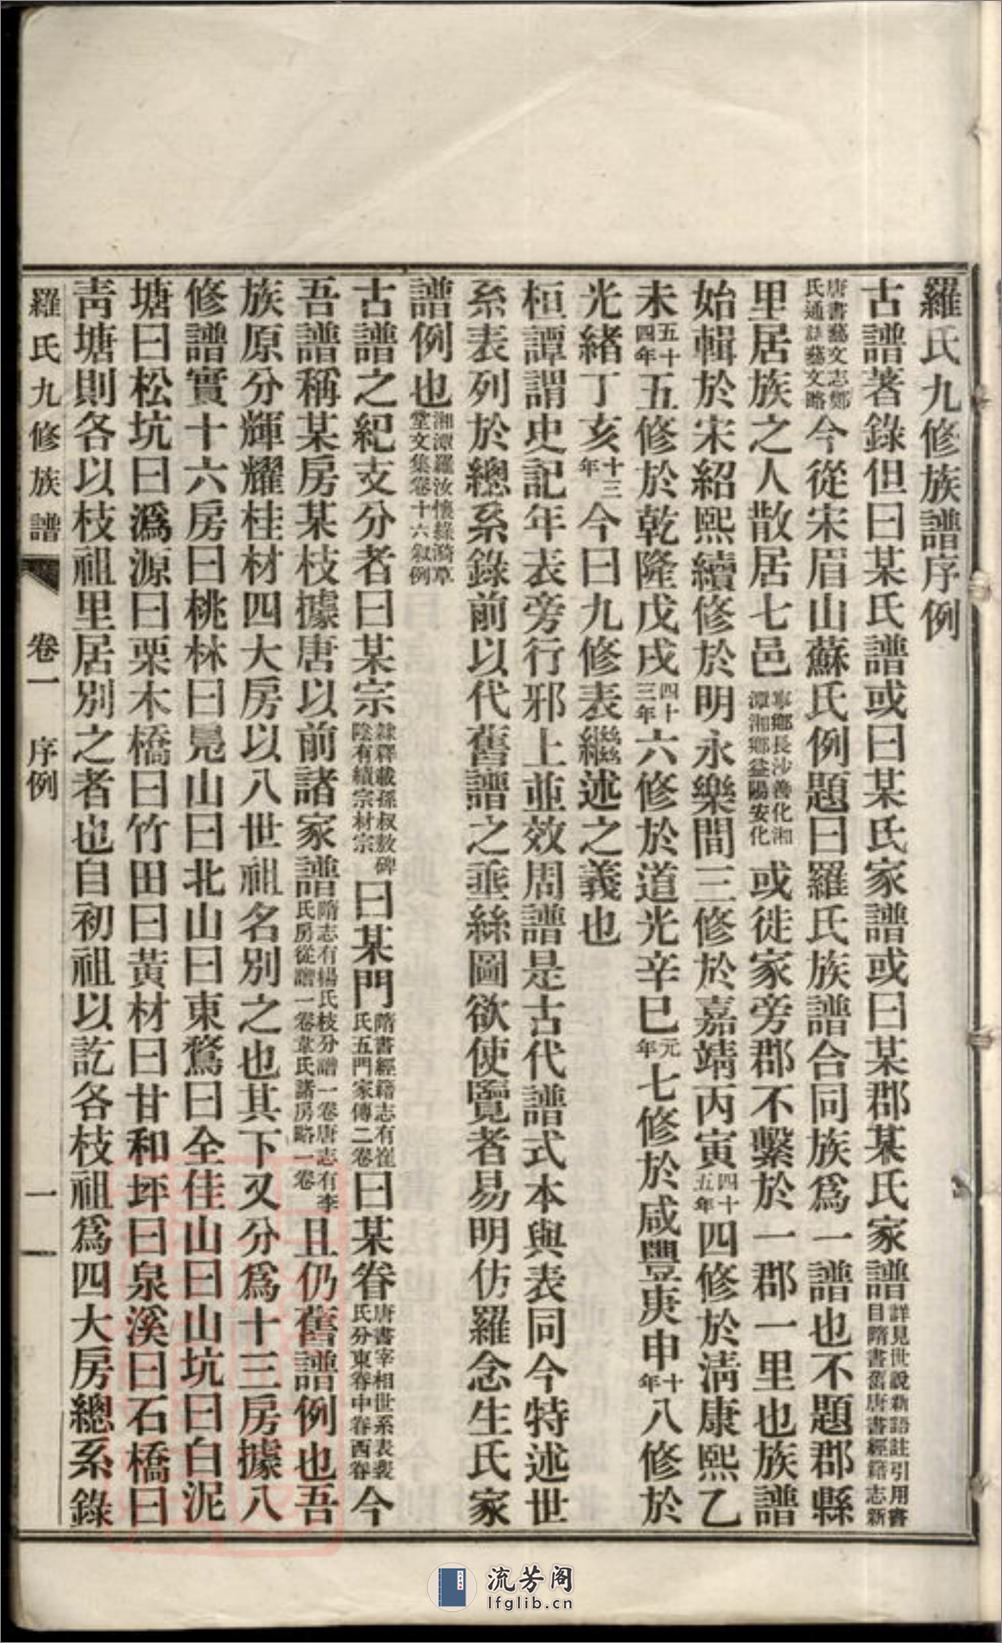 羅氏九修族譜序例
古譜著錄但曰某氏譜或曰某氏家譜或曰某郡某氏家譜詳見世說新語註引用書目隋書舊唐書經籍志新
唐書藝文志鄭氏通志藝文略今從宋眉山蘇氏例題曰羅氏族譜合同族爲一譜也不題郡縣
里居族之人散居七邑寧鄉長沙善化湘潭湘鄉益陽安化或徙家旁郡不繫於一郡一里也族譜
始輯於宋紹熙續修於明永樂間三修於嘉靖丙寅四十五年四修於淸康熙乙
未五十四年五修於乾隆戊戌四十三年六修於道光辛巳元年七修於咸豐庚申十年八修於
光緒丁亥十三年今曰九修表繼繼述之義也
桓譚謂史記年表旁行邪上並效周譜是古代譜式本與表同今特述世
系表列於總系錄前以代舊譜之垂絲圖欲使覽者易明仿羅念生氏家
譜例也湘潭羅汝懷綠漪草堂文集卷十六叙例
古譜之紀支分者曰某宗隸釋載孫叔敖碑陰有績宗材宗曰某門隋書經籍志有崔氏五門家傳二卷曰某眷唐書宰相世系表裴氏分東眷中眷西眷今
吾譜稱某房某枝據唐以前諸家譜隋志有楊氏枝分譜一卷唐志有李氏房從譜一卷韋氏諸房略一卷且仍舊譜例也吾
族原分輝耀桂材四大房以八世祖名別之也其下又分爲十三房據八
修譜實十六房曰桃林曰鳧山曰北山曰東鶩曰全佳山曰山坑曰白泥
塘曰松坑曰潙源曰栗木橋曰竹田曰黃材曰甘和坪曰泉溪曰石橋曰
靑塘則各以枝祖里居別之者也自初祖以訖各枝祖爲四大房總系錄
羅氏九修族譜 卷一 序例 一
流芳阁
lfglib.cn